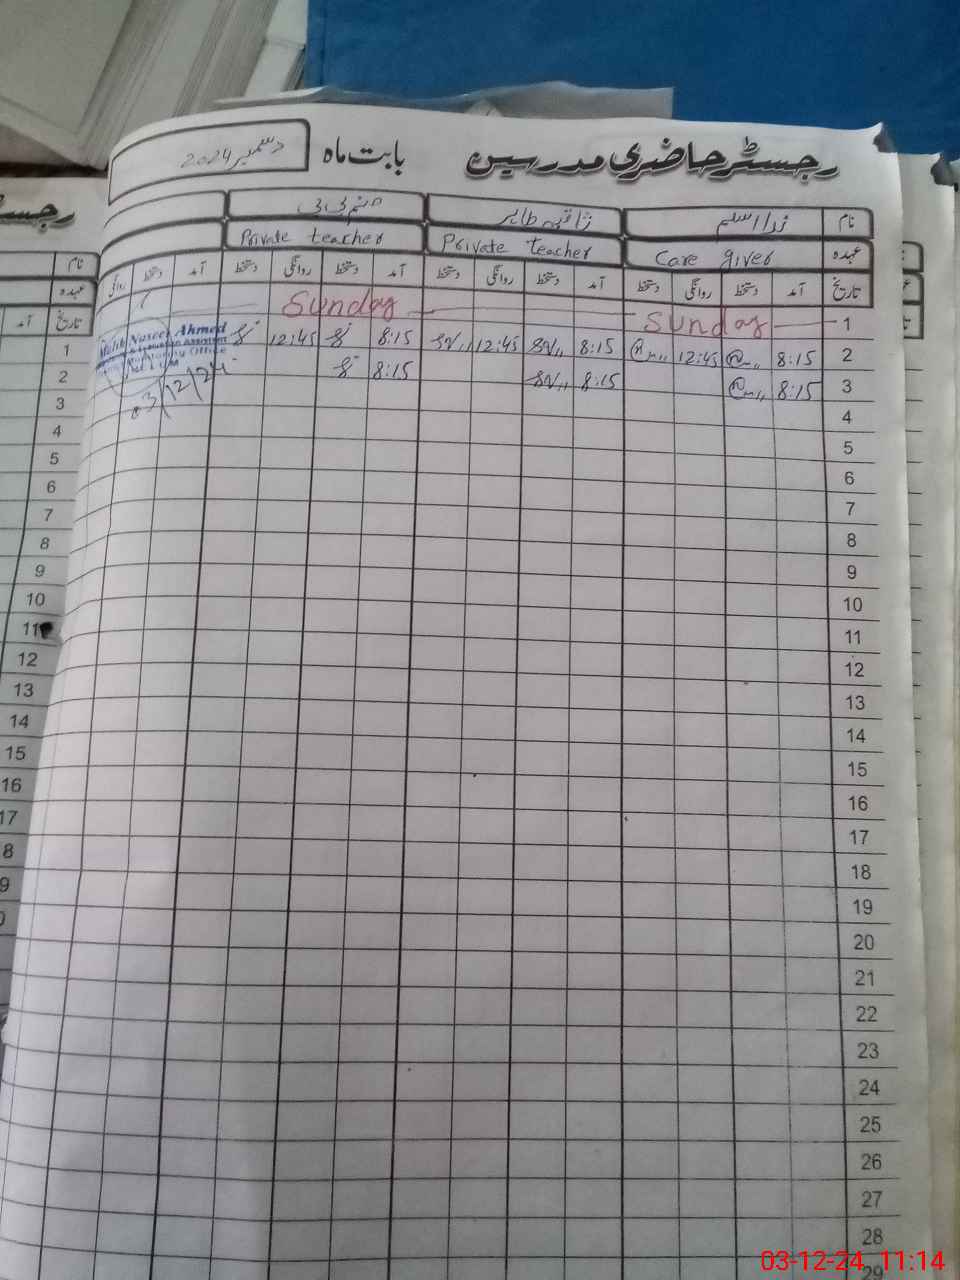 رجسٹر حاضری مدرسین بابت ماہ دسمبر 2024
نام ندا اسلم ثاقبہ طاہر صنم بی بی
عہدہ Care giver Private teacher Private teacher
تاریخ آمد دستخط روانگی دستخط آمد دستخط روانگی دستخط آمد دستخط روانگی دستخط آمد دستخط روانگی
1 Sunday Sunday
2 8:15 12:45 8:15 12:45 8:15 12:45
3 8:15 8:15 8:15
Malik Naseer Ahmed
03/12/24
4
5
6
7
8
9
10
11
12
13
14
15
16
17
18
19
20
21
22
23
24
25
26
27
28
29
رجسٹر
نام
عہدہ
تاریخ آمد
1
2
3
4
5
6
7
8
9
10
11
12
13
14
15
16
17
8
9
03-12-24 11:14